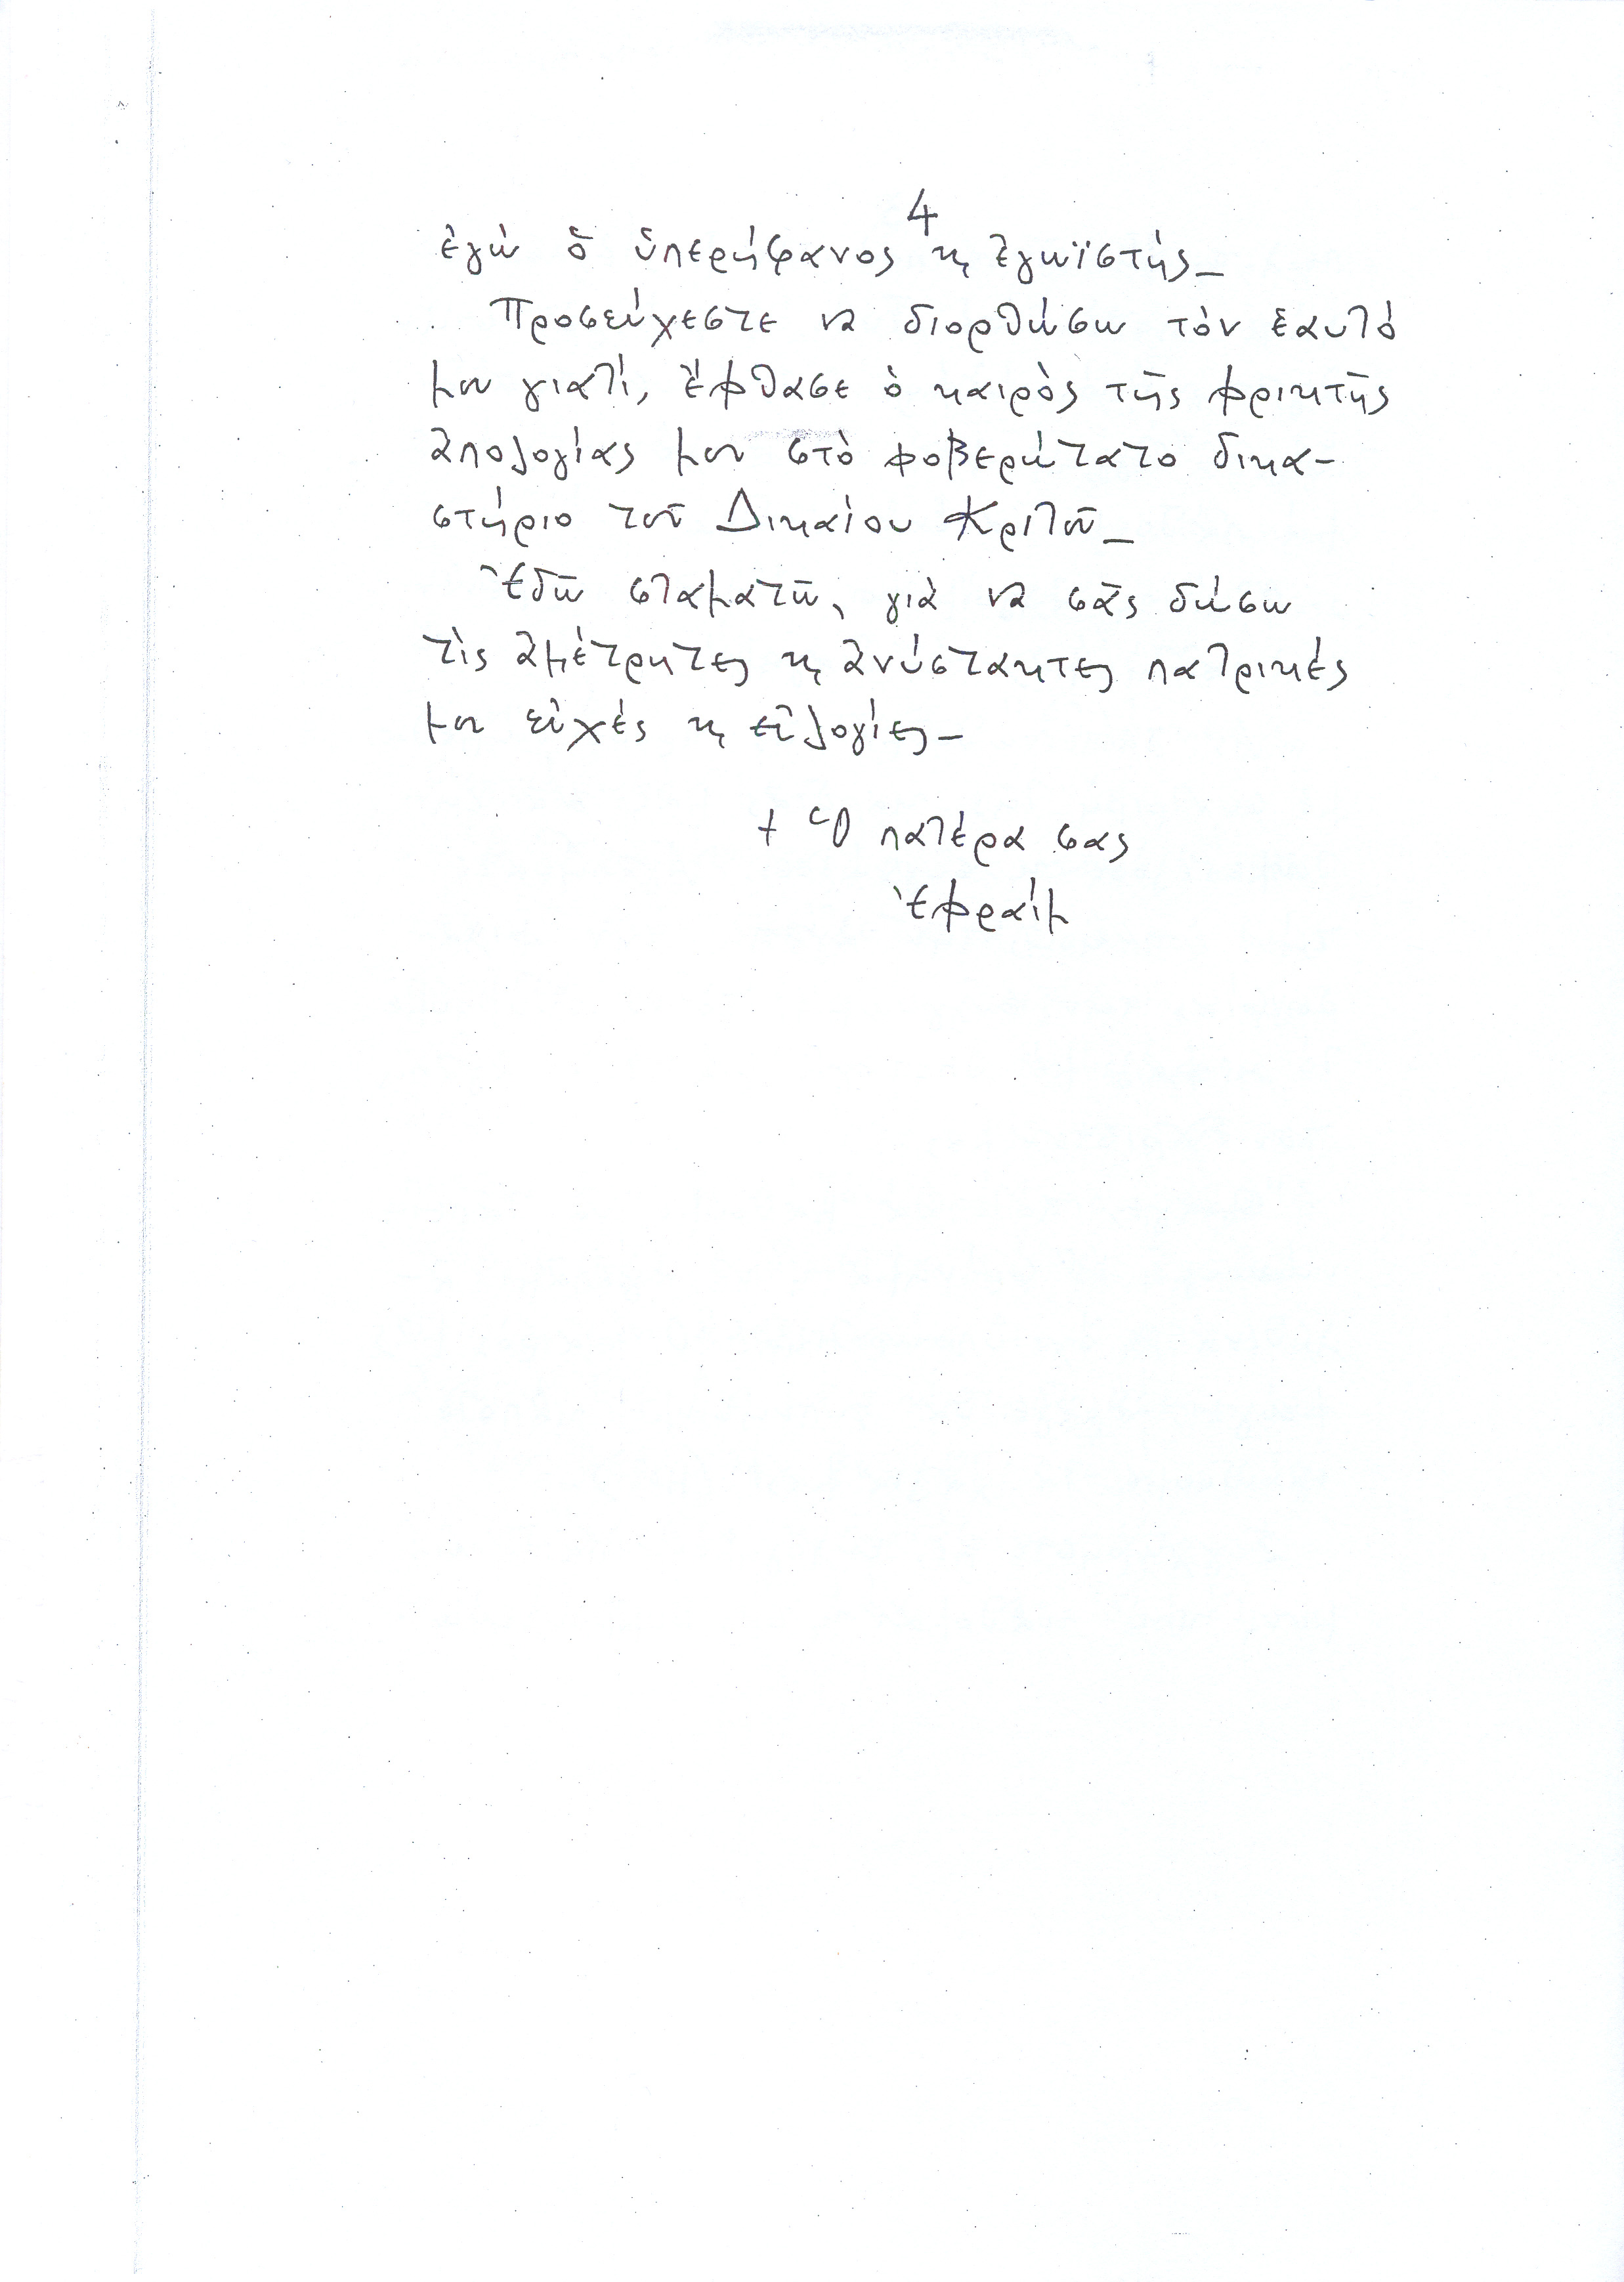 4
ἐγὼ ὁ ὑπερήφανος ϗ ἐγωϊστής_
Προσεύχεστε νὰ διορθώσω τὸν ἑαυτό
μου γιατί, ἔφθασε ὁ καιρὸς τῆς φρικτῆς
ἀπολογίας μου στὸ φοβερώτατο δικα-
στήριο τοῦ Δικαίου Κριτοῦ_
Ἐδῶ σταματῶ, γιὰ νὰ σᾶς δώσω
τὶς ἀμέτρητες ϗ ἀνύστακτες πατρικές
μου εὐχές ϗ εὐλογίες_
+ Ὁ πατέρα σας
Ἐφραίμ